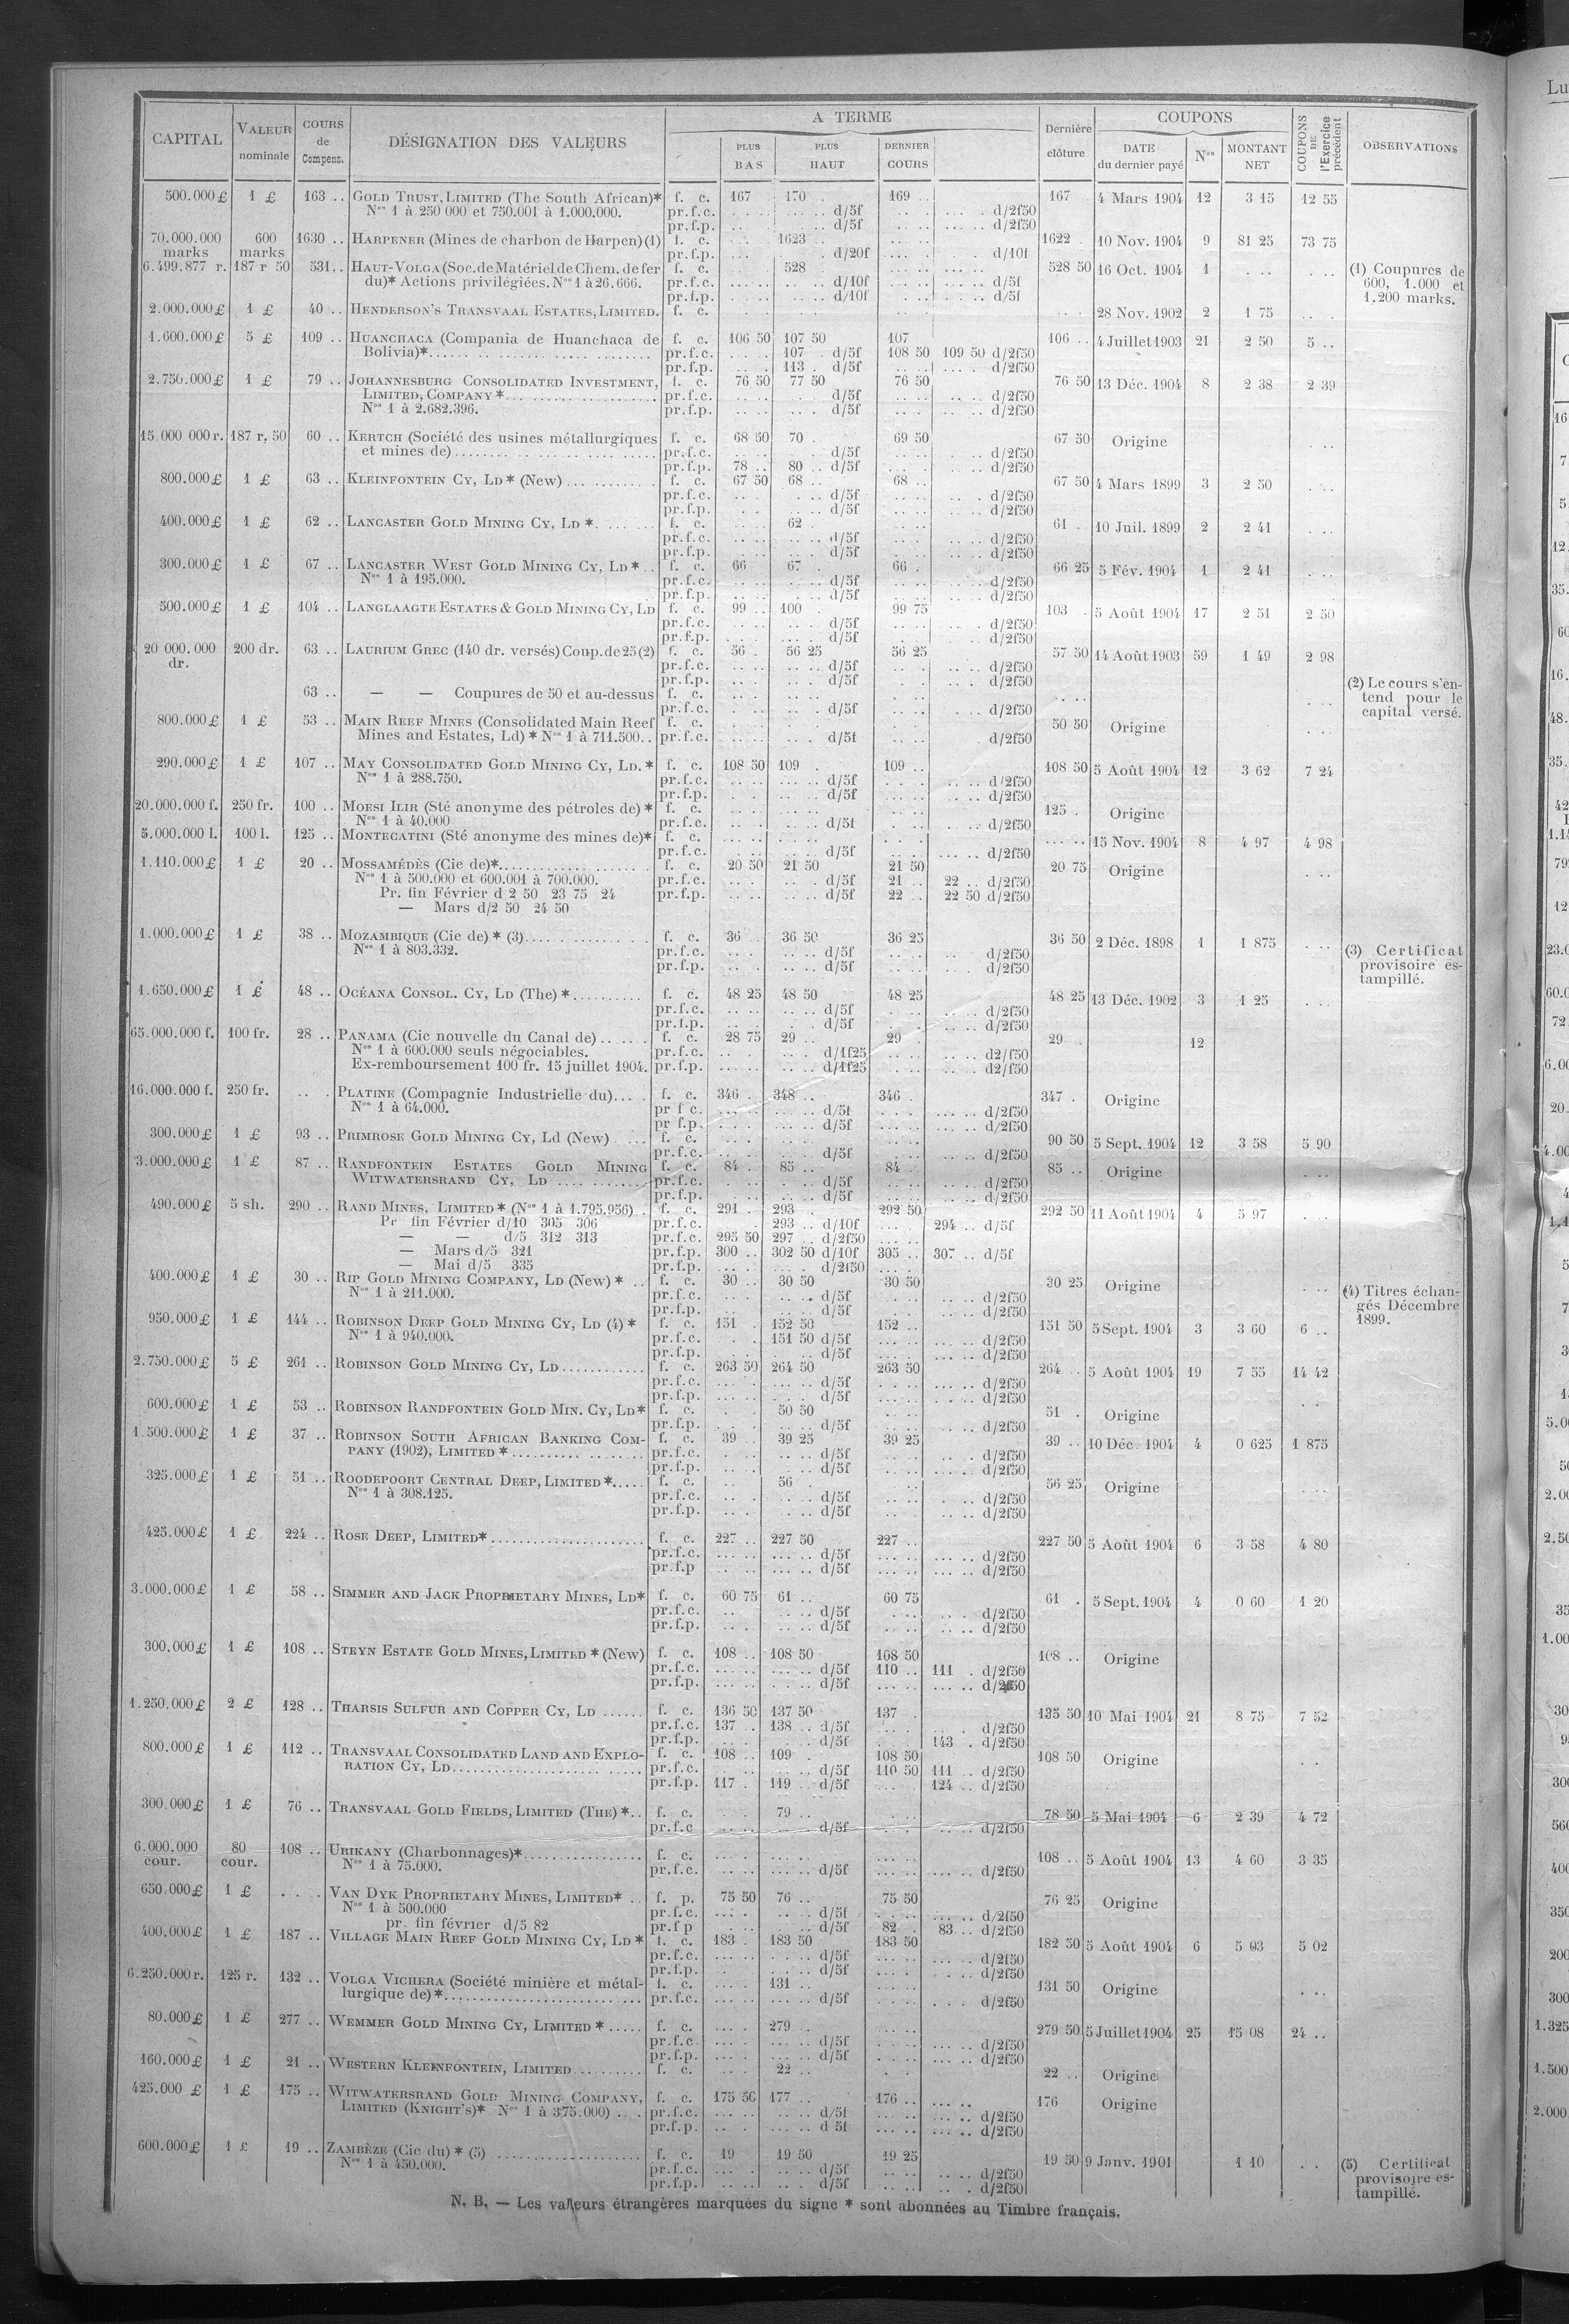 CAPITAL | VALEUR nominale | COURS de Compens. | DÉSIGNATION DES VALEURS | A TERME | PLUS BAS | PLUS HAUT | DERNIER COURS | Dernière clôture | COUPONS | DATE du dernier payé | Nos | MONTANT NET | COUPONS DE l'Exercice précédent | OBSERVATIONS
500.000 £ 1 £ 163 .. GOLD TRUST, LIMITED (The South African)* f. c. 167 170 169 167 4 Mars 1904 12 3 15 12 55
Nos 1 à 250 000 et 750.001 à 1.000.000. pr.f.c. d/5f d/2f50
pr.f.p. d/5f d/2f50
70.000.000 marks 600 marks 1630 .. HARPENER (Mines de charbon de Harpen) (1) f. c. 1623 1622 10 Nov. 1904 9 81 25 73 75
pr.f.p. d/20f d/10f
6.499.877 r. 187 r 50 531 .. HAUT-VOLGA (Soc. de Matériel de Chem. de fer f. c. 528 528 50 16 Oct. 1904 1
du)* Actions privilégiées. Nos 1 à 26.666. pr.f.c. d/10f d/5f
pr.f.p. d/10f d/5f
(1) Coupures de
600, 1.000 et
1.200 marks.
2.000.000 £ 1 £ 40 .. HENDERSON'S TRANSVAAL ESTATES, LIMITED. f. c. 28 Nov. 1902 2 1 75
1.600.000 £ 5 £ 109 .. HUANCHACA (Compania de Huanchaca de f. c. 106 50 107 50 107 106 .. 4 Juillet 1903 21 2 50 5 ..
Bolivia)* pr.f.c. 107 d/5f 108 50 109 50 d/2f50
pr.f.p. 113 d/5f d/2f50
2.750.000 £ 1 £ 79 .. JOHANNESBURG CONSOLIDATED INVESTMENT, f. c. 76 50 77 50 76 50 76 50 13 Déc. 1904 8 2 38 2 39
LIMITED, COMPANY * pr.f.c. d/5f d/2f50
Nos 1 à 2.682.396. pr.f.p. d/5f d/2f50
15.000 000 r. 187 r, 50 60 .. KERTCH (Société des usines métallurgiques f. c. 68 50 70 69 50 67 50 Origine
et mines de) pr.f.c. d/5f d/2f50
pr.f.p. 78 .. 80 .. d/5f d/2f50
800.000 £ 1 £ 63 .. KLEINFONTEIN CY, LD * (New) f. c. 67 50 68 .. 68 .. 67 50 4 Mars 1899 3 2 50
pr.f.c. d/5f d/2f50
pr.f.p. d/5f d/2f50
400.000 £ 1 £ 62 .. LANCASTER GOLD MINING CY, LD * f. c. 62 61 10 Juil. 1899 2 2 41
pr.f.c. d/5f d/2f50
pr.f.p. d/5f d/2f50
300.000 £ 1 £ 67 .. LANCASTER WEST GOLD MINING CY, LD * f. c. 66 67 66 66 25 5 Fév. 1904 1 2 41
Nos 1 à 195.000. pr.f.c. d/5f d/2f50
pr.f.p. d/5f d/2f50
500.000 £ 1 £ 104 .. LANGLAAGTE ESTATES & GOLD MINING CY, LD f. c. 99 .. 100 99 75 103 5 Août 1904 17 2 51 2 50
pr.f.c. d/5f d/2f50
pr.f.p. d/5f d/2f50
20 000.000 dr. 200 dr. 63 .. LAURIUM GREC (140 dr. versés) Coup. de 25 (2) f. c. 56 56 25 56 25 57 50 14 Août 1903 59 1 49 2 98
pr.f.c. d/5f d/2f50
pr.f.p. d/5f d/2f50
63 .. — — Coupures de 50 et au-dessus f. c.
pr.f.c. d/5f d/2f50
(2) Le cours s'en-
tend pour le
capital versé.
800.000 £ 1 £ 53 .. MAIN REEF MINES (Consolidated Main Reef f. c. 50 50 Origine
Mines and Estates, Ld) * Nos 1 à 711.500 pr.f.c. d/5f d/2f50
290.000 £ 1 £ 107 .. MAY CONSOLIDATED GOLD MINING CY, LD. * f. c. 108 50 109 109 .. 108 50 5 Août 1904 12 3 62 7 24
Nos 1 à 288.750. pr.f.c. d/5f d/2f50
pr.f.p. d/5f d/2f50
20.000.000 f. 250 fr. 100 .. MOESI ILIR (Sté anonyme des pétroles de) * f. c. 125 Origine
Nos 1 à 40.000 pr.f.c. d/5f d/2f50
5.000.000 l. 100 l. 125 .. MONTECATINI (Sté anonyme des mines de)* f. c. 15 Nov. 1904 8 4 97 4 98
pr.f.c. d/5f d/2f50
1.110.000 £ 1 £ 20 .. MOSSAMÉDÈS (Cie de)* f. c. 20 50 21 50 21 50 20 75 Origine
Nos 1 à 500.000 et 600.001 à 700.000. pr.f.c. d/5f 21 .. 22 .. d/2f50
Pr. fin Février d 2 50 23 75 24 pr.f.p. d/5f 22 .. 22 50 d/2f50
— Mars d/2 50 24 50
1.000.000 £ 1 £ 38 .. MOZAMBIQUE (Cie de) * (3) f. c. 36 36 50 36 25 36 50 2 Déc. 1898 1 1 875
Nos 1 à 803.332. pr.f.c. d/5f d/2f50
pr.f.p. d/5f d/2f50
(3) Certificat
provisoire es-
tampillé.
1.650.000 £ 1 £ 48 .. OCÉANA CONSOL. CY, LD (The) * f. c. 48 25 48 50 48 25 48 25 13 Déc. 1902 3 1 25
pr.f.c. d/5f d/2f50
pr.f.p. d/5f d/2f50
65.000.000 f. 100 fr. 28 .. PANAMA (Cie nouvelle du Canal de) f. c. 28 75 29 .. 29 29 12
Nos 1 à 600.000 seuls négociables. pr.f.c. d/1f25 d2/f50
Ex-remboursement 100 fr. 15 juillet 1904. pr.f.p. d/1f25 d2/f50
16.000.000 f. 250 fr. PLATINE (Compagnie Industrielle du) f. c. 346 348 .. 346 347 Origine
Nos 1 à 64.000. pr f c. d/5f d/2f50
pr f.p. d/5f d/2f50
300.000 £ 1 £ 93 .. PRIMROSE GOLD MINING CY, Ld (New) f. c. 90 50 5 Sept. 1904 12 3 58 5 90
pr.f.c. d/5f d/2f50
3.000.000 £ 1 £ 87 .. RANDFONTEIN ESTATES GOLD MINING f. c. 84 85 .. 84 85 .. Origine
WITWATERSRAND CY, LD pr.f.c. d/5f d/2f50
pr.f.p. d/5f d/2f50
490.000 £ 5 sh. 290 .. RAND MINES, LIMITED * (Nos 1 à 1.795.956) f. c. 291 293 292 50 292 50 11 Août 1904 4 5 97
Pr fin Février d/10 305 306 pr.f.c. 293 .. d/10f 294 .. d/5f
— — d/5 312 313 pr.f.c. 295 50 297 .. d/2f50
— Mars d/5 321 pr.f.p. 300 .. 302 50 d/10f 305 .. 307 .. d/5f
— Mai d/5 335 pr.f.p. d/2f50
400.000 £ 1 £ 30 .. RIP GOLD MINING COMPANY, LD (New) * f. c. 30 30 50 30 50 30 25 Origine
Nos 1 à 211.000. pr.f.c. d/5f d/2f50
pr.f.p. d/5f d/2f50
(4) Titres échan-
gés Décembre
1899.
950.000 £ 1 £ 144 .. ROBINSON DEEP GOLD MINING CY, LD (4) * f. c. 151 152 50 152 .. 151 50 5 Sept. 1904 3 3 60 6 ..
Nos 1 à 940.000. pr.f.c. 151 50 d/5f d/2f50
pr.f.p. d/5f d/2f50
2.750.000 £ 5 £ 261 .. ROBINSON GOLD MINING CY, LD f. c. 263 50 264 50 263 50 264 5 Août 1904 19 7 55 14 42
pr.f.c. d/5f d/2f50
pr.f.p. d/5f d/2f50
600.000 £ 1 £ 53 .. ROBINSON RANDFONTEIN GOLD MIN. CY, LD* f. c. 50 50 51 Origine
pr.f.p. d/5f d/2f50
1.500.000 £ 1 £ 37 .. ROBINSON SOUTH AFRICAN BANKING COM- f. c. 39 39 25 39 25 39 .. 10 Déc. 1904 4 0 625 1 875
PANY (1902), LIMITED * pr.f.c. d/5f d/2f50
pr.f.p. d/5f d/2f50
325.000 £ 1 £ 51 .. ROODEPOORT CENTRAL DEEP, LIMITED * f. c. 56 56 25 Origine
Nos 1 à 308.125. pr.f.c. d/5f d/2f50
pr.f.p. d/5f d/2f50
425.000 £ 1 £ 224 .. ROSE DEEP, LIMITED* f. c. 227 .. 227 50 227 .. 227 50 5 Août 1904 6 3 58 4 80
pr.f.c. d/5f d/2f50
pr.f.p d/5f d/2f50
3.000.000 £ 1 £ 58 .. SIMMER AND JACK PROPRIETARY MINES, LD* f. c. 60 75 61 .. 60 75 61 5 Sept. 1904 4 0 60 1 20
pr.f.c. d/5f d/2f50
pr.f.p. d/5f d/2f50
300.000 £ 1 £ 108 .. STEYN ESTATE GOLD MINES, LIMITED * (New) f. c. 108 .. 108 50 108 50 108 .. Origine
pr.f.c. d/5f 110 .. 111 d/2f50
pr.f.p. d/5f d/2f50
1.250.000 £ 2 £ 128 .. THARSIS SULFUR AND COPPER CY, LD f. c. 136 50 137 50 137 135 50 10 Mai 1904 21 8 75 7 52
pr.f.c. 137 138 .. d/5f d/2f50
pr.f.p. d/5f 143 d/2f50
800.000 £ 1 £ 112 .. TRANSVAAL CONSOLIDATED LAND AND EXPLO- f. c. 108 .. 109 108 50 108 50 Origine
RATION CY, LD pr.f.c. d/5f 110 50 111 d/2f50
pr.f.p. 117 119 d/5f 124 .. d/2f50
300.000 £ 1 £ 76 .. TRANSVAAL GOLD FIELDS, LIMITED (THE) * f. c. 79 .. 78 50 5 Mai 1904 6 2 39 4 72
pr.f.c d/5f d/2f50
6.000.000 cour. 80 cour. 108 .. URIKANY (Charbonnages)* f. c. 108 .. 5 Août 1904 13 4 60 3 35
Nos 1 à 75.000. pr.f.c. d/5f d/2f50
650.000 £ 1 £ VAN DYK PROPRIETARY MINES, LIMITED* f. p. 75 50 76 .. 75 50 76 25 Origine
Nos 1 à 500.000 pr.f.c. d/5f d/2f50
pr. fin février d/5 82 pr.f p d/5f 82 83 .. d/2f50
400.000 £ 1 £ 187 .. VILLAGE MAIN REEF GOLD MINING CY, LD * f. c. 183 183 50 183 50 182 50 5 Août 1904 6 5 03 5 02
pr.f.c. d/5f d/2f50
pr.f.p. d/5f d/2f50
6.250.000 r. 125 r. 132 .. VOLGA VICHERA (Société minière et métal- f. c. 131 .. 131 50 Origine
lurgique de) * pr.f.c. d/5f d/2f50
80.000 £ 1 £ 277 .. WEMMER GOLD MINING CY, LIMITED * f. c. 279 279 50 5 Juillet 1904 25 15 08 24 ..
pr.f.c d/5f d/2f50
pr.f.p. d/5f d/2f50
160.000 £ 1 £ 21 .. WESTERN KLEINFONTEIN, LIMITED f. c. 22 .. 22 .. Origine
425.000 £ 1 £ 175 .. WITWATERSRAND GOLD MINING COMPANY, f. c. 175 50 177 .. 176 .. 176 Origine
LIMITED (KNIGHT'S)* Nos 1 à 375.000) pr.f.c. d/5f d/2f50
pr.f.p. d 5f d/2f50
600.000 £ 1 £ 19 .. ZAMBÈZE (Cie du) * (5) f. c. 19 19 50 19 25 19 50 9 Janv. 1901 1 10
Nos 1 à 450.000. pr.f.c. d/5f d/2f50
pr.f.p. d/5f d/2f50
(5) Certificat
provisoire es-
tampillé.
N. B. — Les valeurs étrangères marquées du signe * sont abonnées au Timbre français.